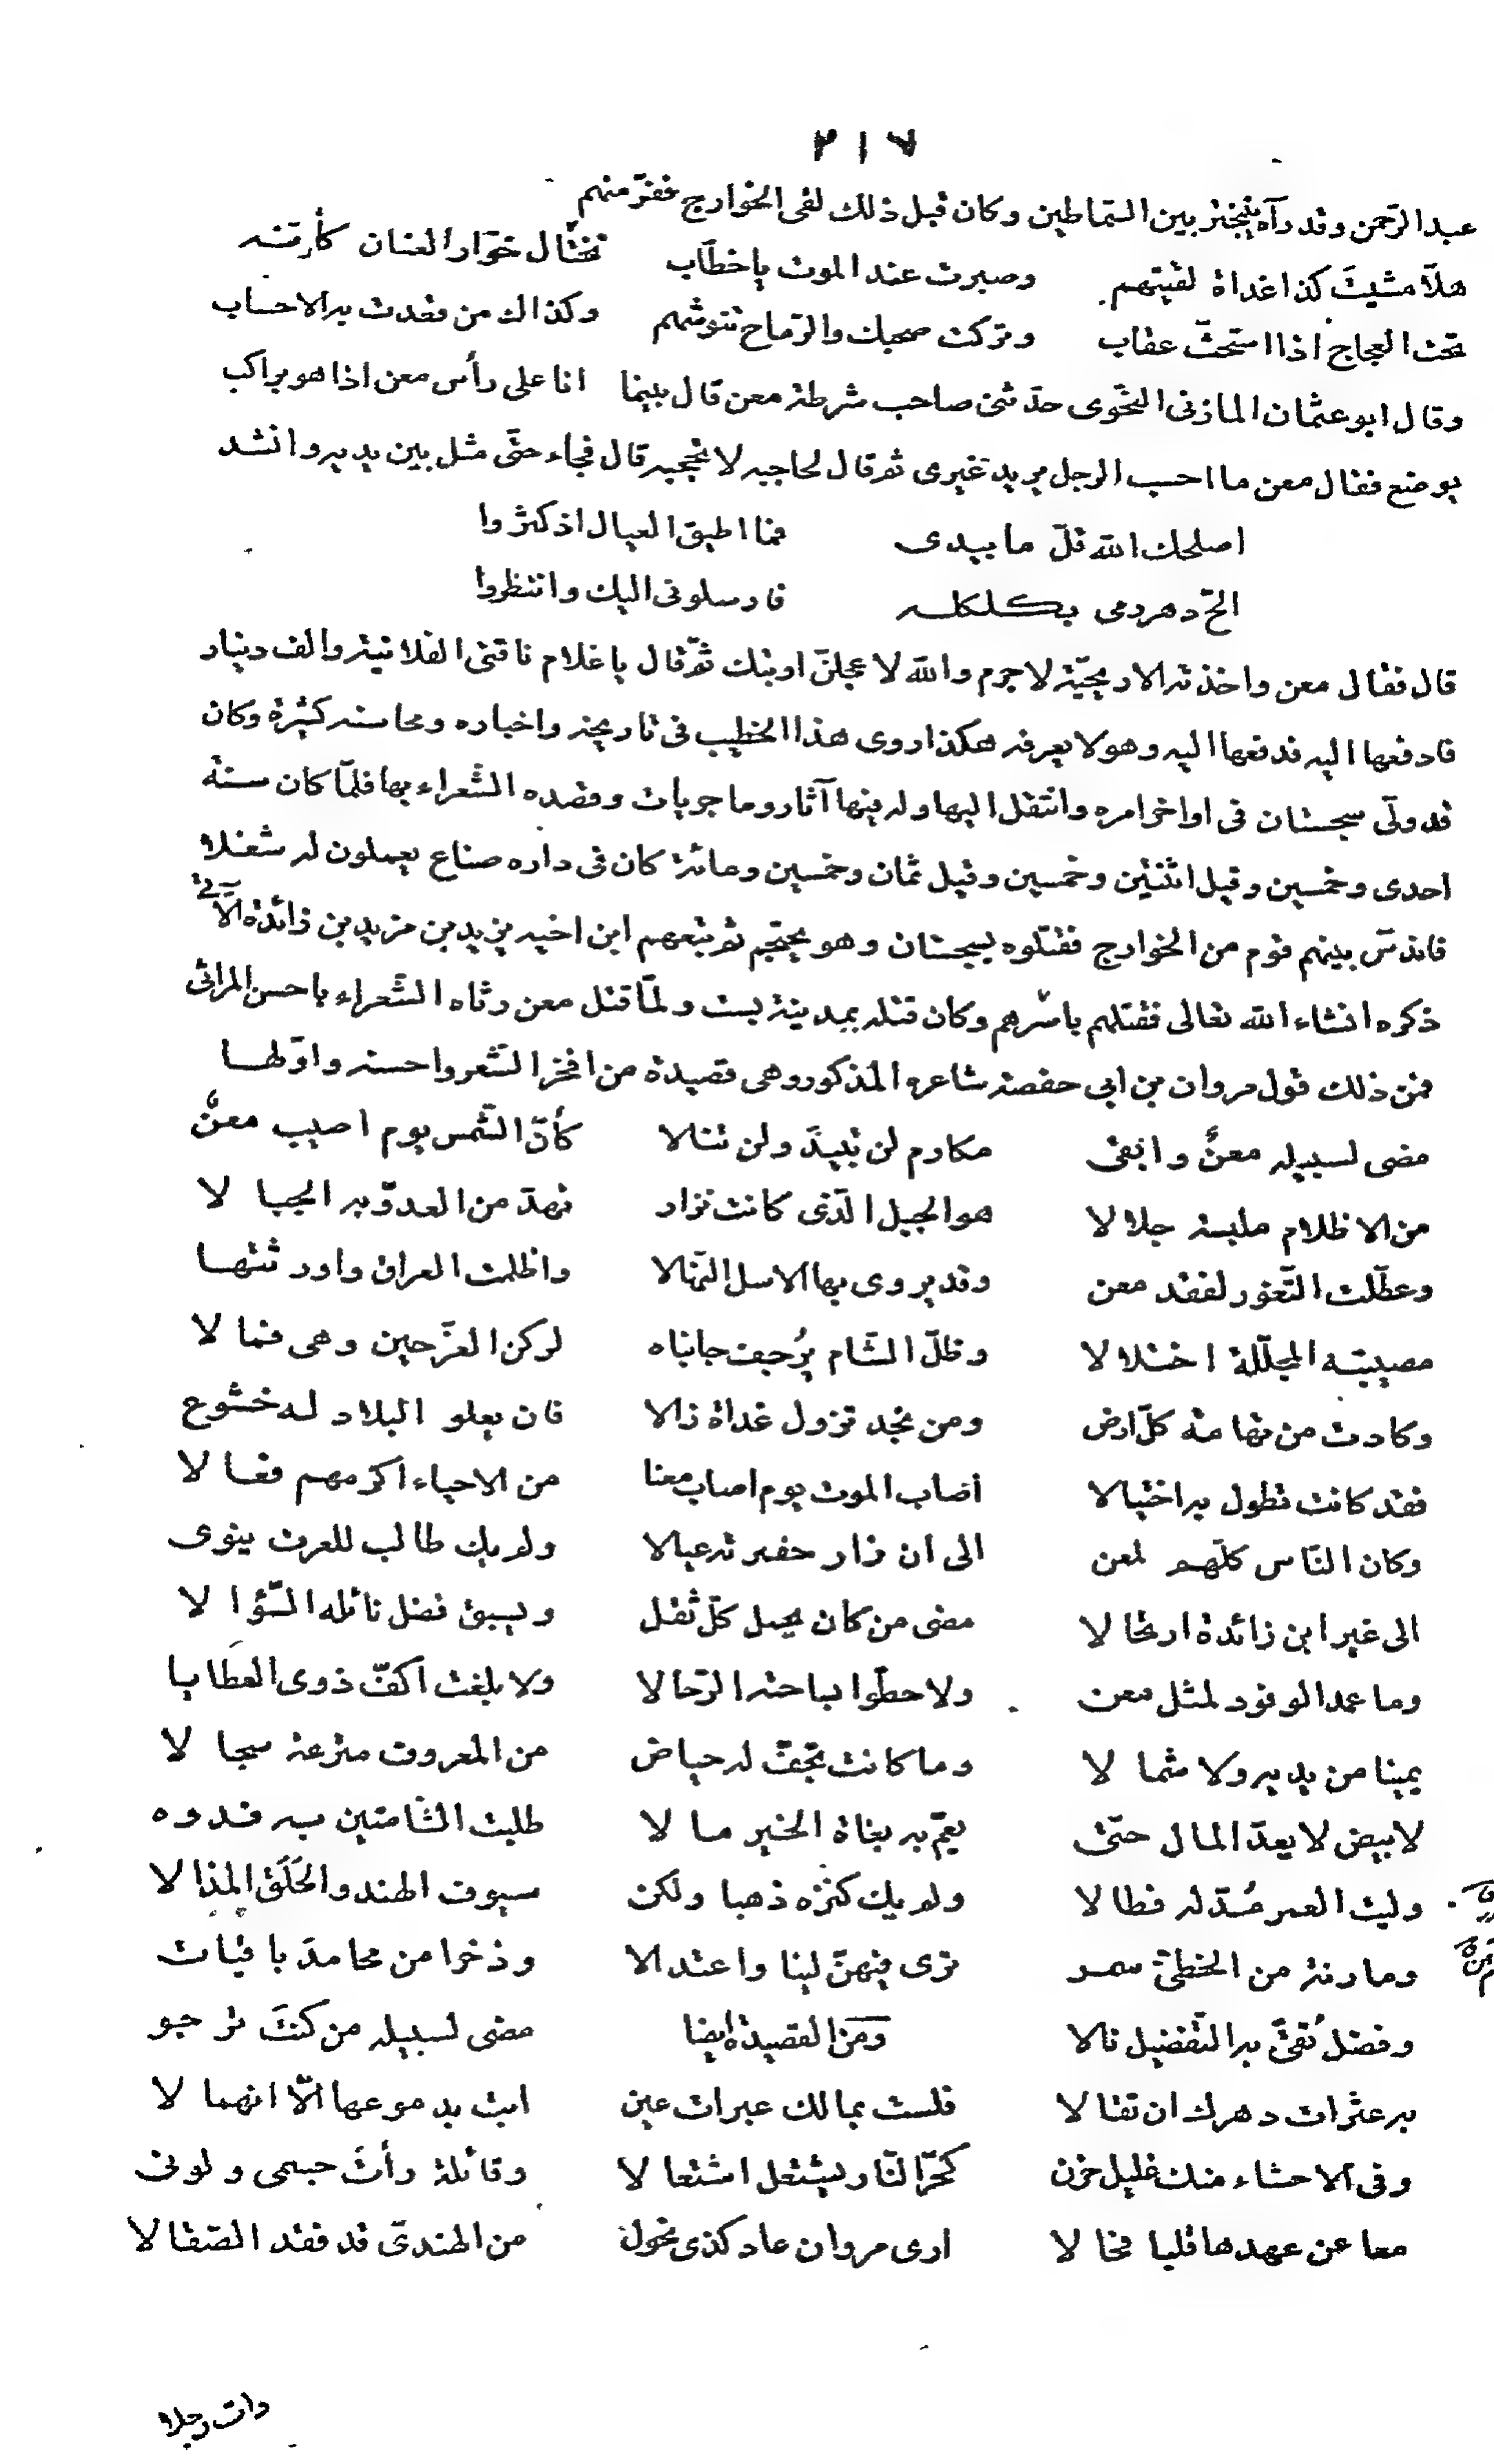 ٢١٧
عبدالرّحمن وقد رآه يتبختر بين السّماطين وكان قبل ذلك لقى الخوارج ففرّ منهم
هلّا مشيتَ كذا غداة لقيتهم وصبرت عند الموت يا خطّاب تختّال خوّار العنان كأرتنه
تحت العجاج اذا استحثّ عقاب وتركت صحبك والرّماح تنوشهم وكذاك من فعدت به الاحساب
وقال ابوعثمان المازنى النّحوى حدّثنى صاحب شرطة معن قال بينما انا على رأس معن اذا هو براكب
يوضع فقال معن ما احسب الرجل يريد غيرى ثمّ قال لحاجبه لا تحجبه قال فجاء حتّى مثل بين يديه وانشد
اصلحك الله قلّ ما بيدى فما اطيق العيال اذ كثروا
الحّ دهر رمى بكلكله فارسلونى اليك وانتظروا
قال فقال معن واخذته الاريحيّة لا جرم والله لا عجلنّ اوبتك ثمّ قال يا غلام ناقتى الفلانية والف دينار
فادفعها اليه فدفعها اليه وهو لا يعرفه هكذا روى هذا الخطيب فى تاريخه واخباره ومحاسنه كثيرة وكان
قد ولّى سجستان فى اواخر امره وانتقل اليها وله فيها آثار وماجريات وقصده الشّعراء بها فلمّا كان سنة
احدى وخمسين وقيل اثنتين وخمسين وقيل ثمان وخمسين ومائة كان فى داره صناع يعملون له شغلا
فاندسّ بينهم قوم من الخوارج فقتلوه بسجستان وهو يحتجم ثمّ تبعهم ابن اخيه يزيد بن مزيد بن زائدة الآتى
ذكره انشاء الله تعالى فقتلهم باسرهم وكان قتله بمدينة بست ولمّا قتل معن رثاه الشّعراء باحسن المراثى
فمن ذلك قول مروان بن ابى حفصة شاعره المذكور وهى قصيدة من افخر الشّعر واحسنه واوّلها
مضى لسبيله معنٌ وابقى مكارم لن تبيدَ ولن تنالا كأنّ الشّمس يوم اصيب معنٌ
من الاظلام ملبسة جلالا هو الجبل الّذى كانت نزار تهدّ من العدوّ به الجبالا
وعطّلت الثّغور لفقد معن وقد يروى بها الاسل النّهالا واظلمت العراق واورثتها
مصيبته المجلّلة اختلالا وظلّ الشّام يُرجف جانباه لركن العزّ حين وهى فمالا
وكادت من تهامة كلّ ارض ومن نجد تزول غداة زالا فان يعلو البلاد له خشوع
فقد كانت تطول به اختيالا اصاب الموت يوم اصاب معنا من الاحياء اكرمهم فعالا
وكان النّاس كلّهم لمعن الى ان زار حفرته عيالا ولم يك طالب للعرف ينوى
الى غير ابن زائدة ارتحالا مضى من كان يحمل كلّ ثقل ويسبق فضل نائله السّؤالا
وما عمد الوفود لمثل معن ولا حطّوا بساحته الرّحالا ولا بلغت اكفّ ذوى العطايا
يمينا من يديه ولا شمالا وما كانت تجفّ له حياض من المعروف مترعة سجالا
لابيض لا يعدّ المال حتّى يعمّ به بغاة الخير مالا
وليت العمر مُدّ له فطالا ولم يك كنزه ذهبا ولكن سيوف الهند والحَلَق المذالا
ومارنة من الخطىّ سمر ترى فيهنّ لينا واعتدالا وذخرا من محامد باقيات
وفضل تُقىً به التّفضيل نالا ومن القصيدة ايضا مضى لسبيله من كنتَ ترجو
به عثرات دهرك ان تقالا فلست بمالك عبرات عين ابت بدموعها الّا انهمالا
وفى الاحشاء منك غليل حزن كحرّ النّار يشتعل اشتعالا وقائلة رأت جسمى ولونى
معا عن عهدها قلبا فحالا ارى مروان عاد كذى نحول من الهندىّ قد فقد الصّقالا